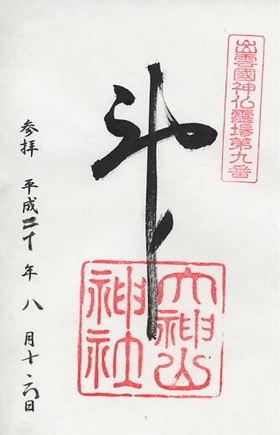 出雲國神仏靈場第九番
斗
大神山
神社
参拝 平成二十年八月十六日